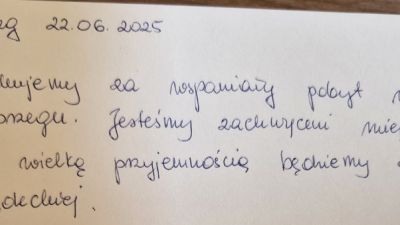 eg 22.06.2025
ujemy za wspaniały pobyt w
brzegu. Jesteśmy zachwyceni miej
wielką przyjemnością będziemy
deckiej.